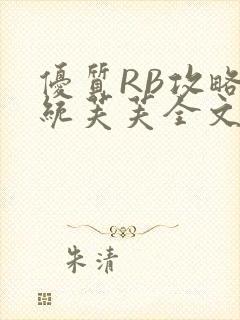 優質RB攻略
統芙芙全文
朱清